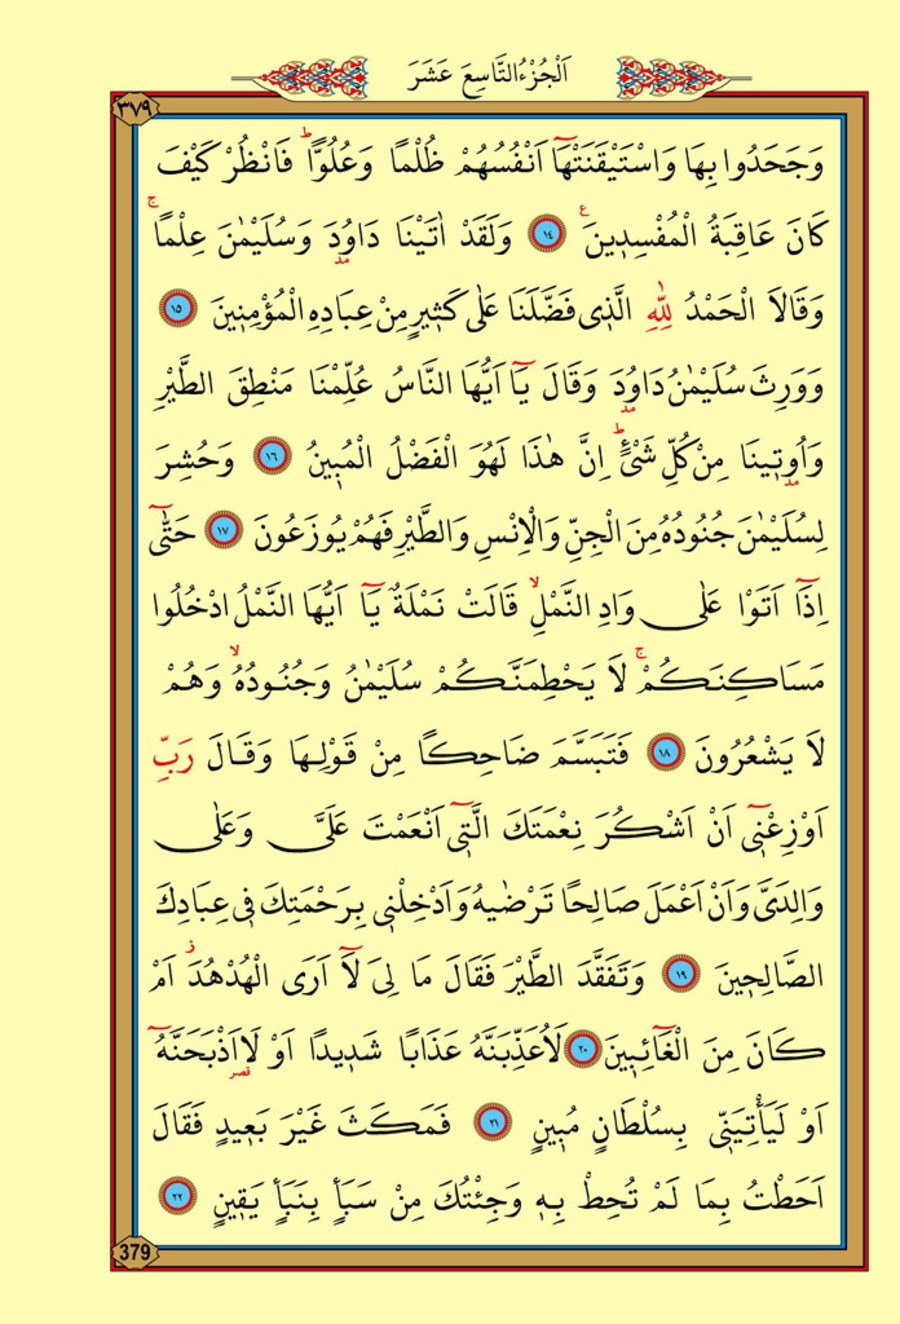 اَلْجُزْءُ التَّاسِعَ عَشَرَ
٣٧٩
وَجَحَدُوا بِهَا وَاسْتَيْقَنَتْهَٓا اَنْفُسُهُمْ ظُلْمًا وَعُلُوًّاۜ فَانْظُرْ كَيْفَ
كَانَ عَاقِبَةُ الْمُفْسِدٖينَ ع ١٤ وَلَقَدْ اٰتَيْنَا دَاوُدَ وَسُلَيْمٰنَ عِلْمًاۚ
وَقَالَا الْحَمْدُ لِلّٰهِ الَّذٖى فَضَّلَنَا عَلٰى كَثٖيرٍ مِنْ عِبَادِهِ الْمُؤْمِنٖينَ ١٥
وَوَرِثَ سُلَيْمٰنُ دَاوُدَ وَقَالَ يَٓا اَيُّهَا النَّاسُ عُلِّمْنَا مَنْطِقَ الطَّيْرِ
وَاُوتٖينَا مِنْ كُلِّ شَیْءٍۜ اِنَّ هٰذَا لَهُوَ الْفَضْلُ الْمُبٖينُ ١٦ وَحُشِرَ
لِسُلَيْمٰنَ جُنُودُهُ مِنَ الْجِنِّ وَالْاِنْسِ وَالطَّيْرِ فَهُمْ يُوزَعُونَ ١٧ حَتّٰٓى
اِذَٓا اَتَوْا عَلٰى وَادِ النَّمْلِۙ قَالَتْ نَمْلَةٌ يَٓا اَيُّهَا النَّمْلُ ادْخُلُوا
مَسَاكِنَكُمْۚ لَا يَحْطِمَنَّكُمْ سُلَيْمٰنُ وَجُنُودُهُۙ وَهُمْ
لَا يَشْعُرُونَ ١٨ فَتَبَسَّمَ ضَاحِكًا مِنْ قَوْلِهَا وَقَالَ رَبِّ
اَوْزِعْنٖٓى اَنْ اَشْكُرَ نِعْمَتَكَ الَّتٖٓى اَنْعَمْتَ عَلَیَّ وَعَلٰى
وَالِدَیَّ وَاَنْ اَعْمَلَ صَالِحًا تَرْضٰيهُ وَاَدْخِلْنٖى بِرَحْمَتِكَ فٖى عِبَادِكَ
الصَّالِحٖينَ ١٩ وَتَفَقَّدَ الطَّيْرَ فَقَالَ مَا لِیَ لَٓا اَرَى الْهُدْهُدَؗ اَمْ
كَانَ مِنَ الْغَٓائِبٖينَ ٢٠ لَاُعَذِّبَنَّهُ عَذَابًا شَدٖيدًا اَوْ لَاَاذْبَحَنَّهُٓ
اَوْ لَيَأْتِيَنّٖى بِسُلْطَانٍ مُبٖينٍ ٢١ فَمَكَثَ غَيْرَ بَعٖيدٍ فَقَالَ
اَحَطْتُ بِمَا لَمْ تُحِطْ بِهٖ وَجِئْتُكَ مِنْ سَبَأٍ بِنَبَأٍ يَقٖينٍ ٢٢
379